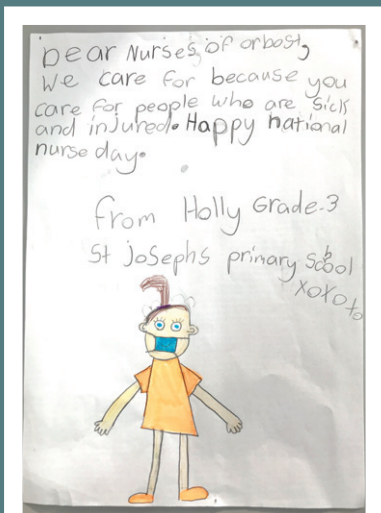 Dear Nurses of orbost,
We care for because you
care for people who are sick
and injured. Happy national
nurse day.
from Holly Grade-3
St josephs primary Scool
xoxo